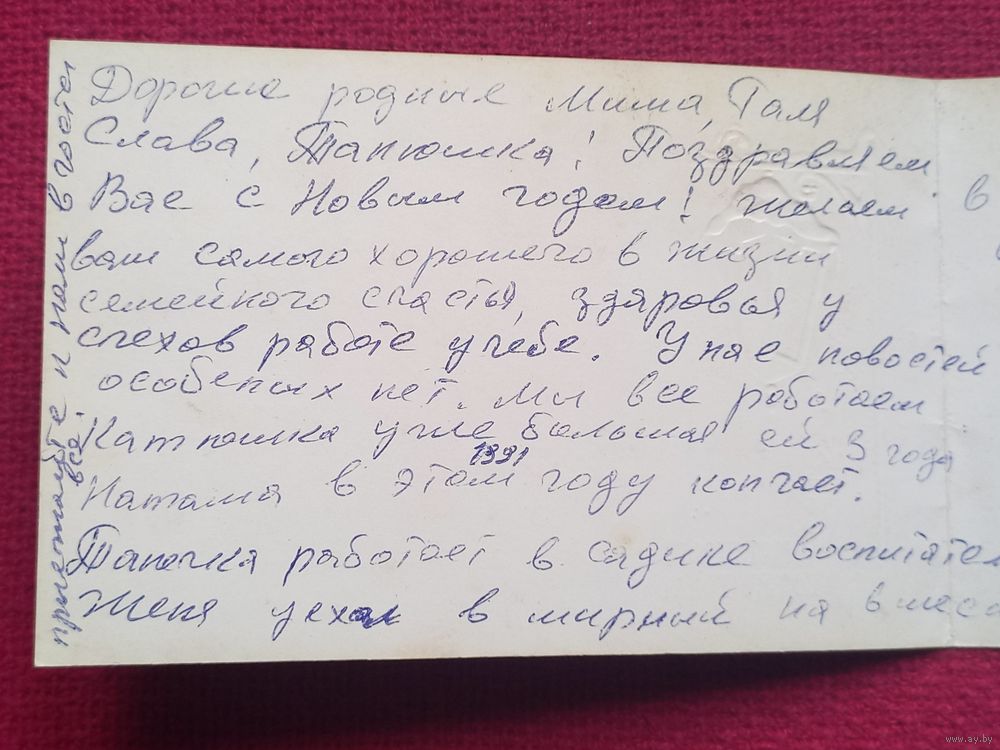 Дорогие родные Мима, Галя
Слава, Танюшка! Поздравляем
Вас с Новым годом! желаем
вам самого хорошего в жизни
семейного счастья, здоровья у
спехов работе учебе. У нас новостей
особеных нет. Мы все работаем
Катюшка уже большая ей 3 года
1991
Наташа в этом году кончает.
Танечка работает в садике воспитател
Женя уехал в мирный на 6 меся
приезжайте к нам в гости
все.
в
www.ay.by